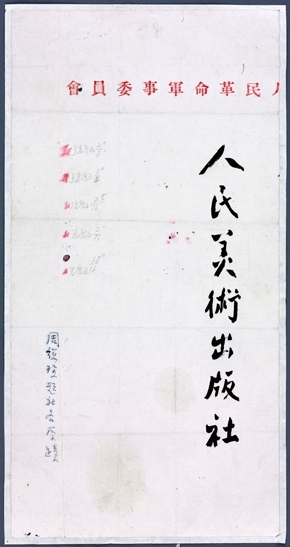 人民革命軍事委員會
人民美術出版社
周總理題社名原蹟